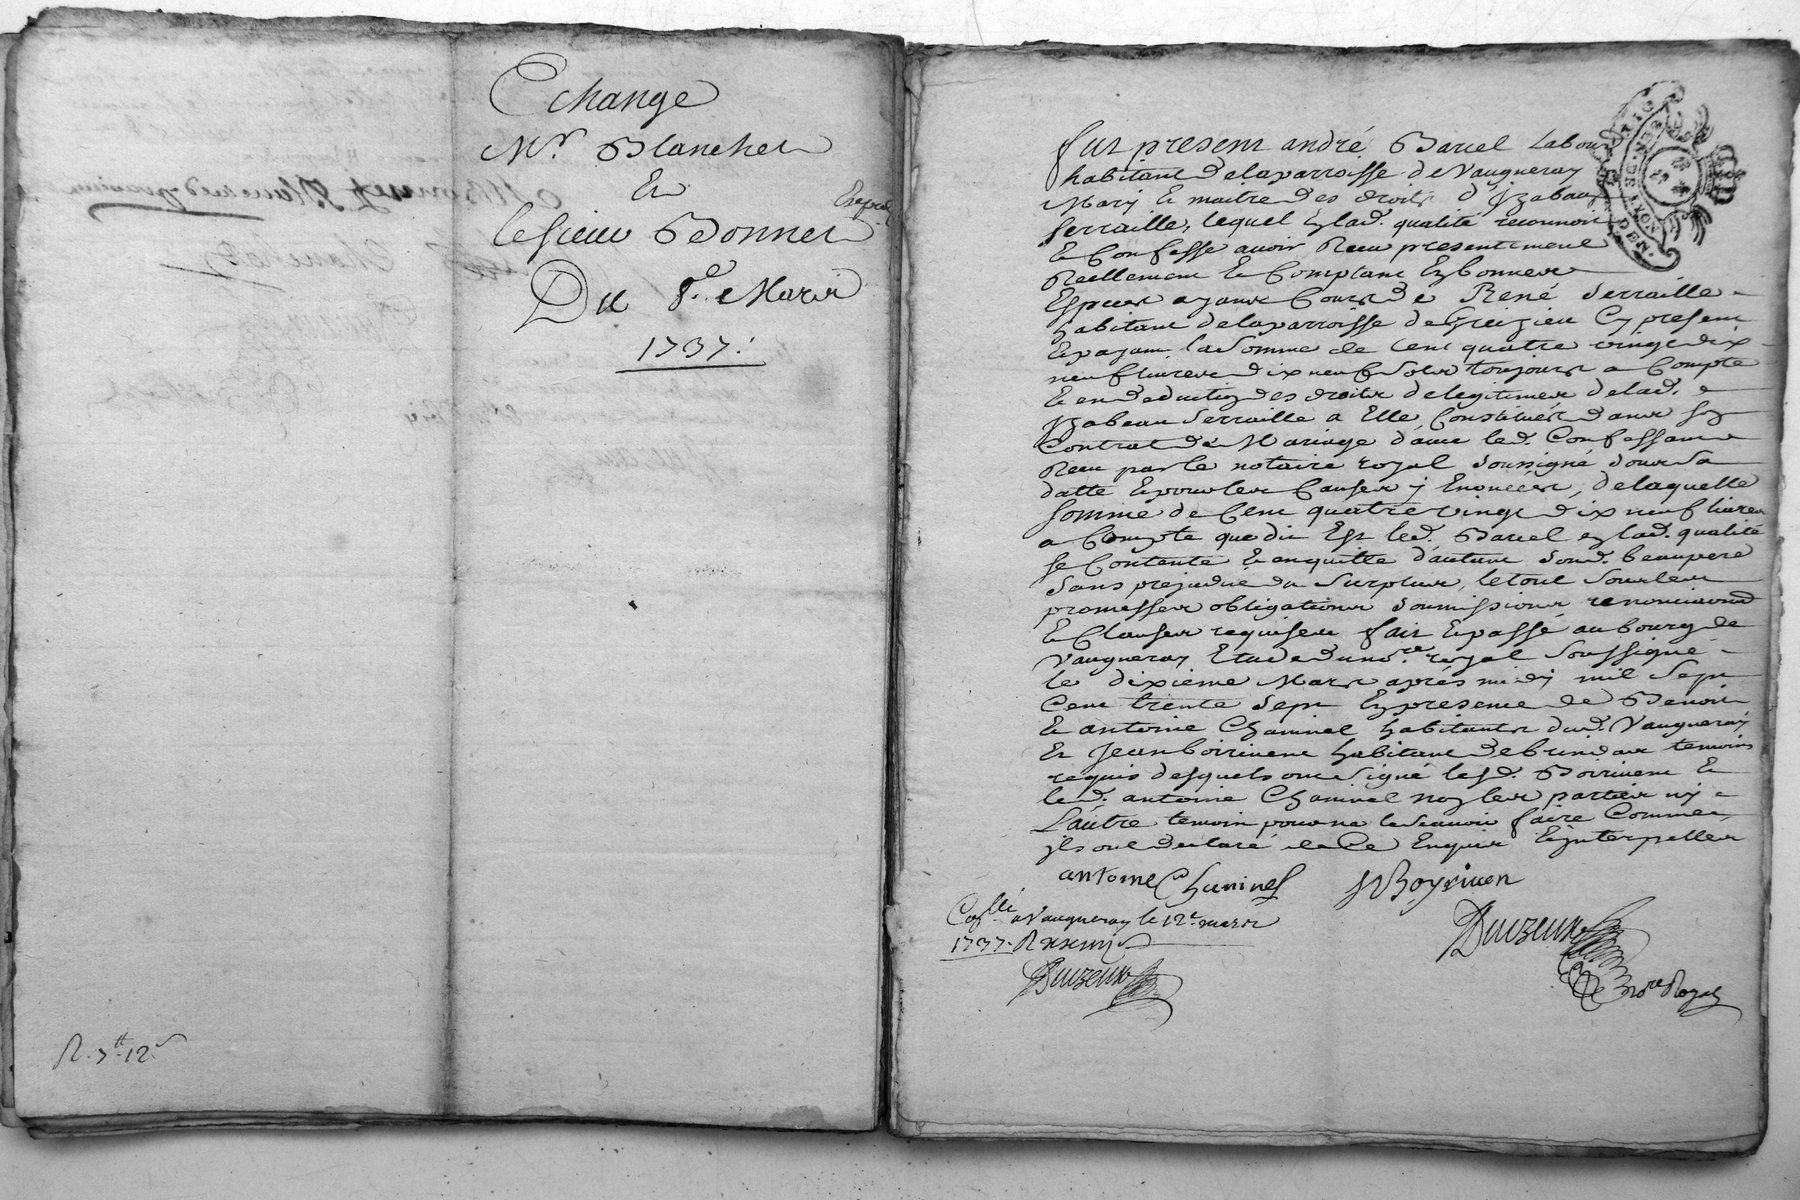 Echange
Mr. Blanchet
Et
le sieur Bonnet
Du 8e. Mars
1737.
R. 7tt 12s
fut present andré Barcel Labou
habitant de la parroisse de Vaugneray
Mary et maitre des droits d'Yzabeau
Serraille, lequel En lad. qualité reconnoit
et Confesse avoir Receu presentement
Reellement et Comptant En bonnes
Especes ayant Cours de René Serraille
habitant de la parroisse de Greizieu Cy present
et payant, la Somme de Cent quatre vingt dix
neuf livres dix neuf Sols toujours a Compte
et en deduction des droits de legitimes de lad.
Yzabeau Serraille a Elle Constitués dans son
Contrat de Mariage d'avec led. Confessant
Receu par le notaire royal soussigné sous Sa
datte et pour les Causes y Enoncées, de laquelle
Somme de Cent quatre vingt dix neuf livres
a Compte que dit Est led. Barcel en lad. qualité
se Contente et en quitte d'autant Sond. beaupere
sans prejudice du Surplus, le tout Sous les
promesses obligations soumissions renonciaons
et Clauses requises fait et passé au bourg de
Vaugneray Etude du nore. royal Soussigné
le dixieme Mars aprés midy mil Sept
Cent trente Sept En presence de Benoit
et antoine Chaninel habitants dud. Vaugneray
et Jean Boirivent habitant de brindas temoins
requis desquels ont Signé led. Boirivent et
led. antoine Chaninel non les parties ny
L'autre temoin pour ne le Scavoir faire Comme
ils ont declaré de Ce Enquis et Interpellés
antoine Chaninel J Boyriven
Conllé a Vaugneray le 12e. mars
1737. R
Duizeux
Duizeux
nore Royal